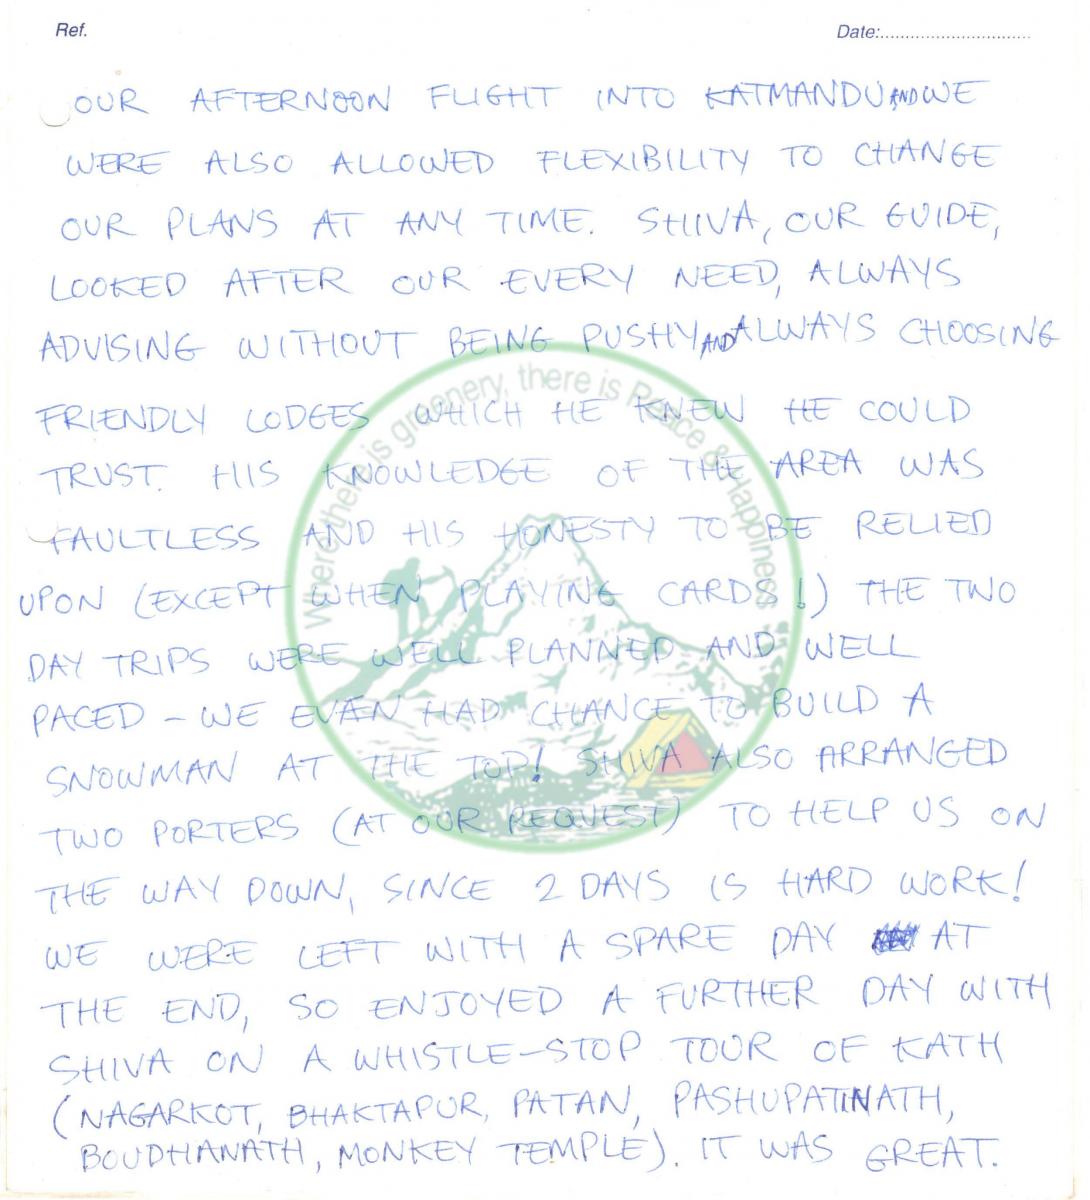 Ref. Date:..............................
OUR AFTERNOON FLIGHT INTO KATMANDU AND WE
WERE ALSO ALLOWED FLEXIBILITY TO CHANGE
OUR PLANS AT ANY TIME. SHIVA, OUR GUIDE,
LOOKED AFTER OUR EVERY NEED, ALWAYS
ADVISING WITHOUT BEING PUSHY AND ALWAYS CHOOSING
FRIENDLY LODGES WHICH HE KNEW HE COULD
TRUST. HIS KNOWLEDGE OF THE AREA WAS
FAULTLESS AND HIS HONESTY TO BE RELIED
UPON (EXCEPT WHEN PLAYING CARDS!) THE TWO
DAY TRIPS WERE WELL PLANNED AND WELL
PACED - WE EVAN HAD CHANCE TO BUILD A
SNOWMAN AT THE TOP! SHIVA ALSO ARRANGED
TWO PORTERS (AT OUR REQUEST) TO HELP US ON
THE WAY DOWN, SINCE 2 DAYS IS HARD WORK!
WE WERE LEFT WITH A SPARE DAY AT
THE END, SO ENJOYED A FURTHER DAY WITH
SHIVA ON A WHISTLE-STOP TOUR OF KATH
(NAGARKOT, BHAKTAPUR, PATAN, PASHUPATINATH,
BOUDHANATH, MONKEY TEMPLE). IT WAS GREAT.
Where there is greenery, there is Peace & Happiness